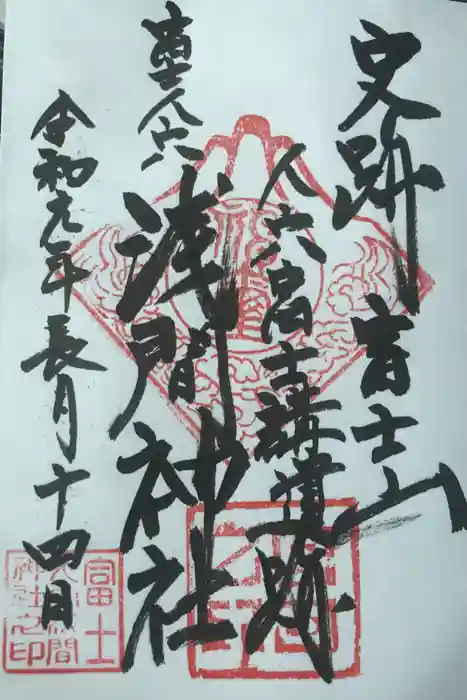 史跡 富士山
人穴富士講遺跡
富士人穴
浅間神社
令和元年長月十四日
冨士
浅間
神社之印